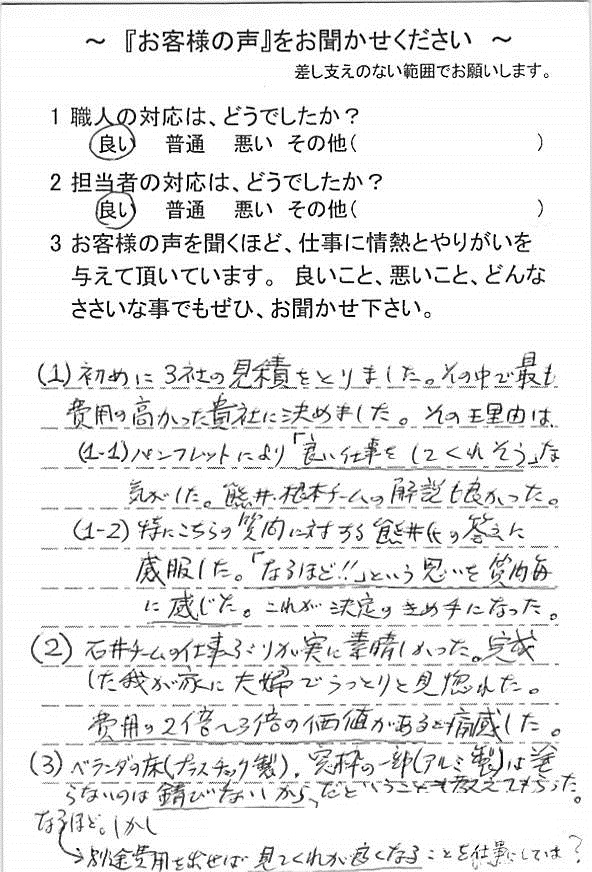 ～ 『お客様の声』をお聞かせください ～
差し支えのない範囲でお願いします。
1 職人の対応は、どうでしたか？
良い 普通 悪い その他( )
2 担当者の対応は、どうでしたか？
良い 普通 悪い その他( )
3 お客様の声を聞くほど、仕事に情熱とやりがいを
与えて頂いています。 良いこと、悪いこと、どんな
ささいな事でもぜひ、お聞かせ下さい。
(1) 初めに3社の見積をとりました。その中で最も
費用の高かった貴社に決めました。その理由は
(1-1) パンフレットにより「良い仕事をしてくれそう」な
気がした。熊井・根本チームの解説も良かった。
(1-2) 特にこちらの質問に対する熊井氏の答えに
感服した。「なるほど!!」という思いを質問毎
に感じた。これが決定のきめ手になった。
(2) 石井チームの仕事ぶりが実に素晴しかった。完成
した我が家に夫婦でうっとりと見惚れた。
費用の2倍～3倍の価値があると痛感した。
(3) ベランダの床(プラスチック製)、窓枠の一部(アルミ製)は塗
らないのは錆びないから、だということも教えてもらった。
なるほど。しかし
→別途費用を出せば見てくれが良くなることを仕事にしては？